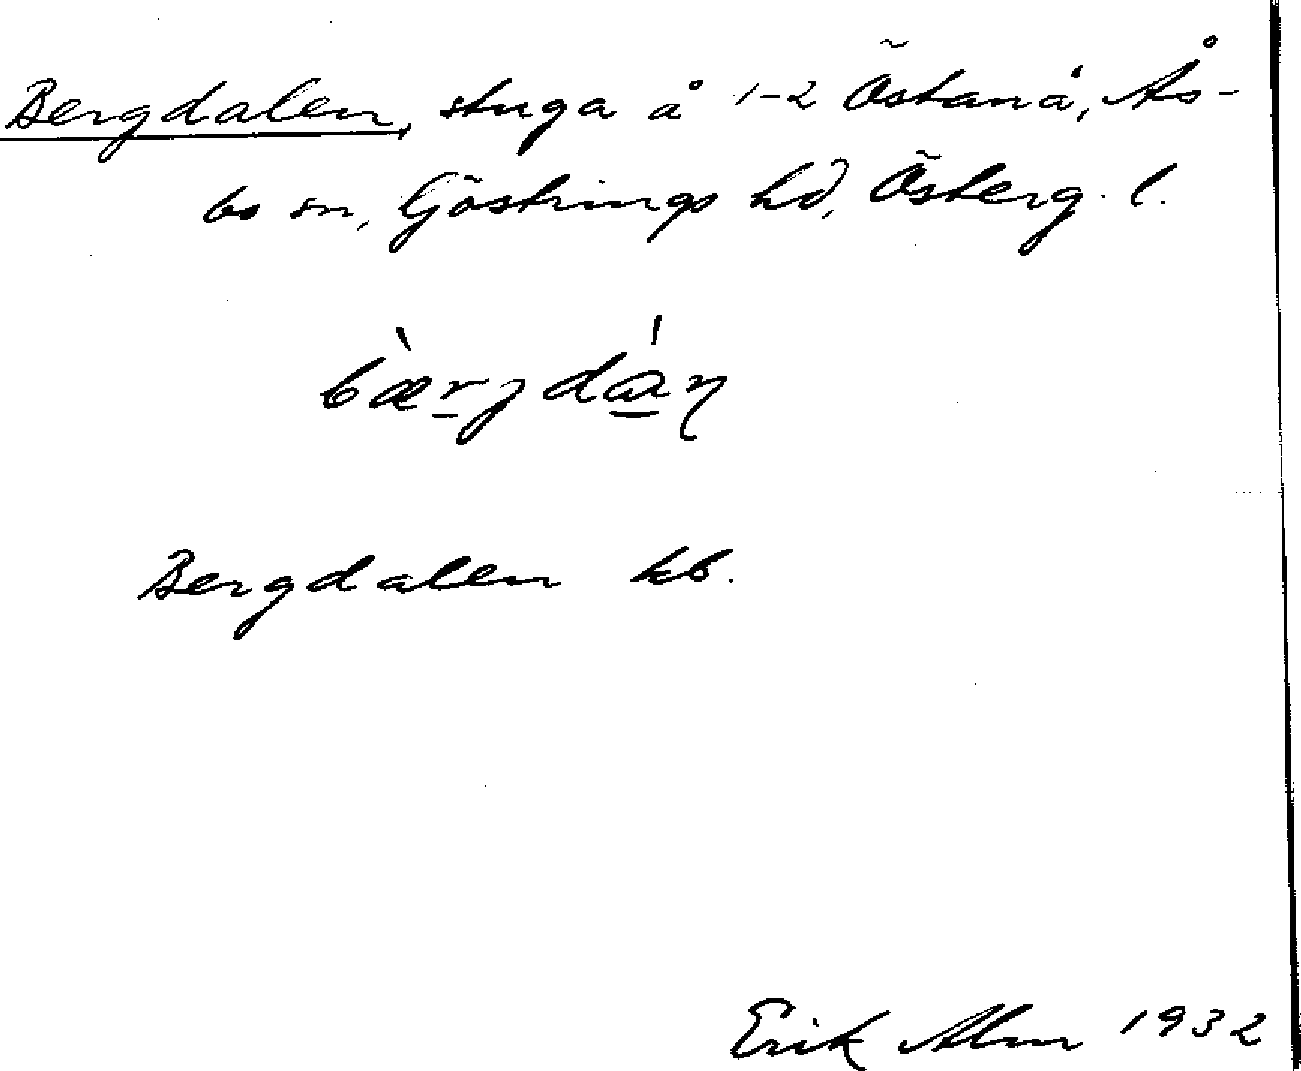 Bergdalen, stuga å 1-2 Östanå, Ås-
bo sn, Göstrings hd, Österg. l.
bæ̀rjdáƞ
Bergdalen kb.
Erik Alm 1932